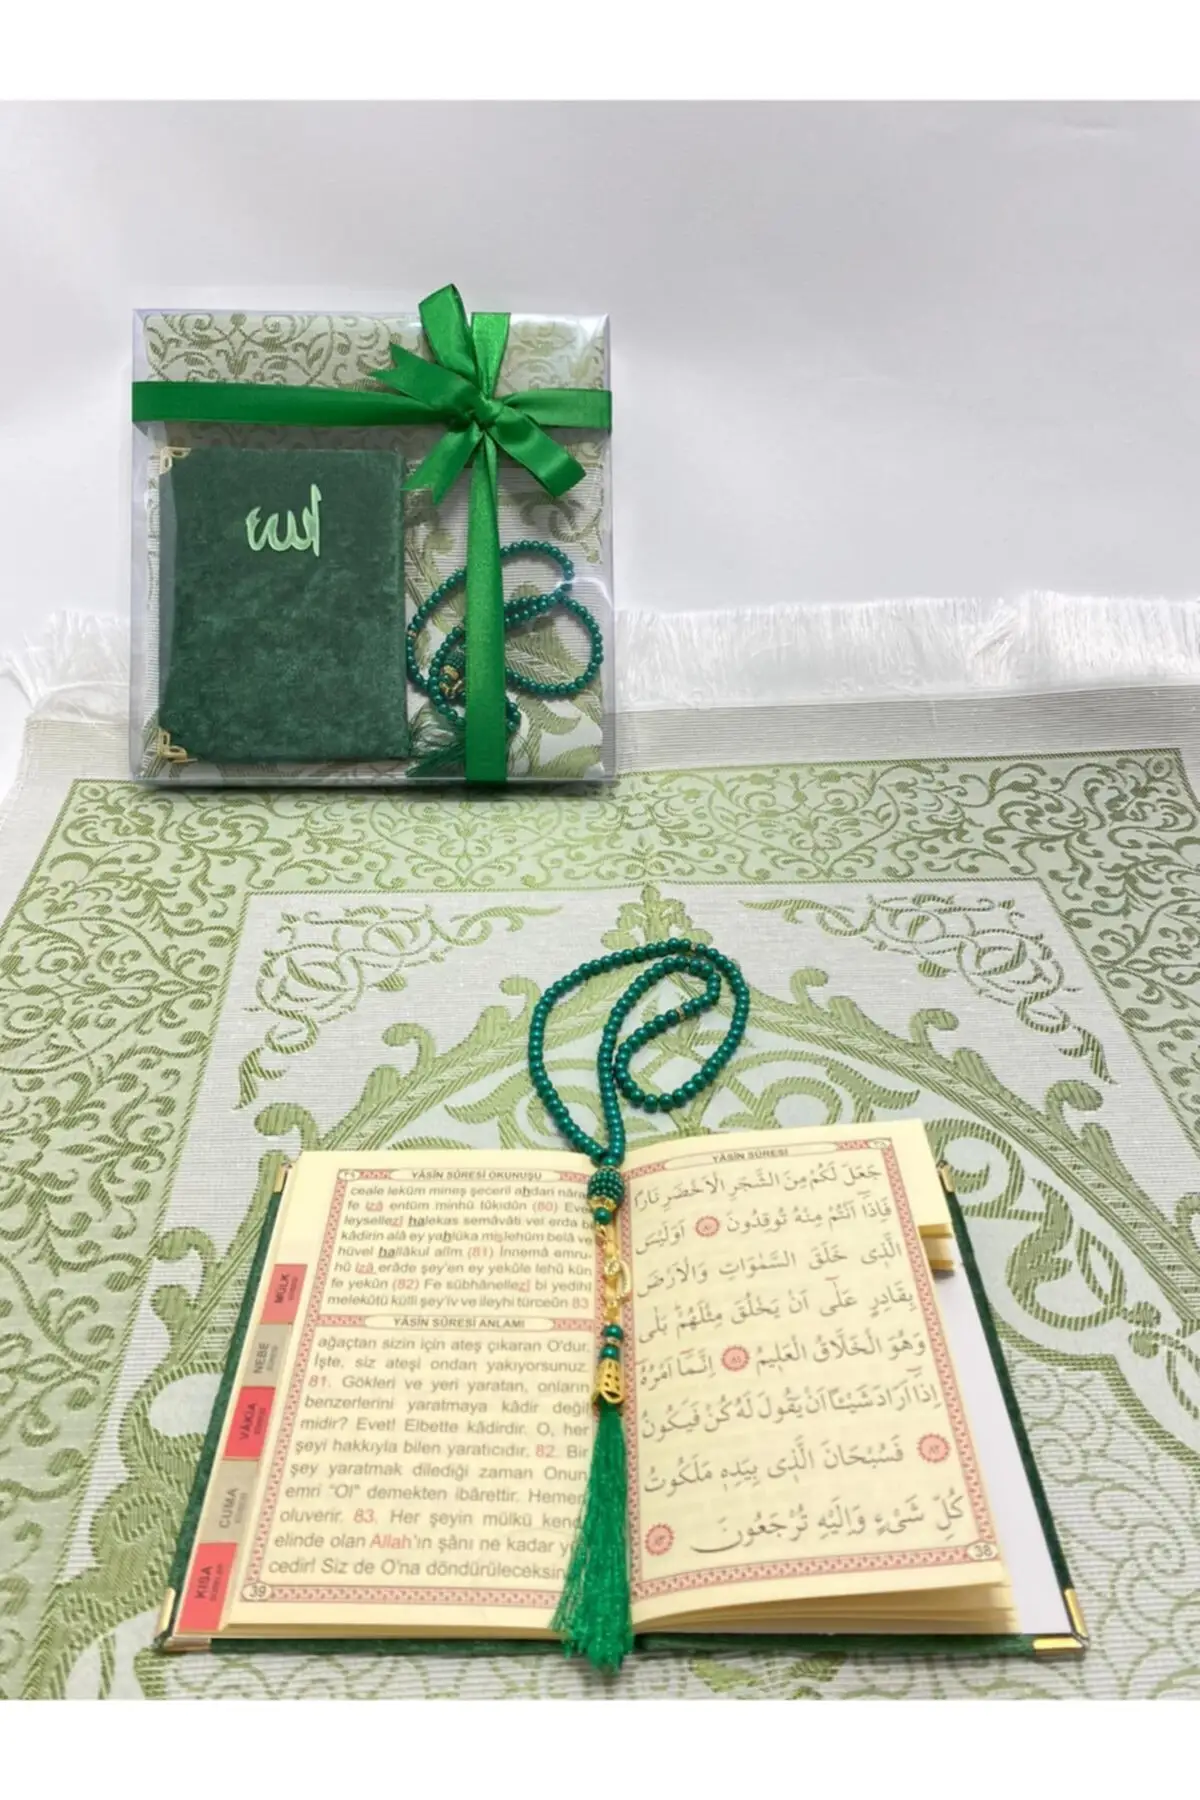 الله
٣٩
YÂSÎN SÛRESİ OKUNUŞU
ceale leküm mineş şeceril ahdari nâra
fe izâ entüm minhü tûkıdûn (80) Eve
leysellezî halekas semâvâti vel erda bi
kâdirin alâ ey yahlüka mişlehüm belâ ve
hüvel hallâkul alîm (81) İnnemâ emru-
hû izâ erâde şey'en ey yekûle lehû kün
fe yekûn (82) Fe sübhânellezî bi yedihi
melekûtü külli şey'iv ve ileyhi türceûn 83
YÂSÎN SÛRESİ ANLAMI
ağaçtan sizin için ateş çıkaran O'dur.
İşte, siz ateşi ondan yakıyorsunuz.
81. Gökleri ve yeri yaratan, onların
benzerlerini yaratmaya kâdir değil
midir? Evet! Elbette kâdirdir. O, her
şeyi hakkıyla bilen yaratıcıdır. 82. Bir
şey yaratmak dilediği zaman Onun
emri "Ol" demekten ibârettir. Hemen
oluverir. 83. Her şeyin mülkü kend
elinde olan Allah'ın şânı ne kadar
cedir! Siz de O'na döndürüleceksin
39
MÜLK
NEBE
VÂKIA
CUMA
KISA
YÂSÎN SÛRESİ
٣٨
جَعَلَ لَكُمْ مِنَ الشَّجَرِ الْاَخْضَرِ نَارًا
فَاِذَٓا اَنْتُمْ مِنْهُ تُوقِدُونَ ٨٠ اَوَلَيْسَ
الَّذ۪ى خَلَقَ السَّمٰوَاتِ وَالْاَرْضَ
بِقَادِرٍ عَلٰٓى اَنْ يَخْلُقَ مِثْلَهُمْ بَلٰى
وَهُوَ الْخَلَّاقُ الْعَل۪يمُ ٨١ اِنَّمَٓا اَمْرُهُٓ
اِذَٓا اَرَادَ شَيْـًٔا اَنْ يَقُولَ لَهُ كُنْ فَيَكُونُ
٨٢ فَسُبْحَانَ الَّذ۪ى بِيَدِه۪ مَلَكُوتُ
كُلِّ شَىْءٍ وَاِلَيْهِ تُرْجَعُونَ ٨٣
38